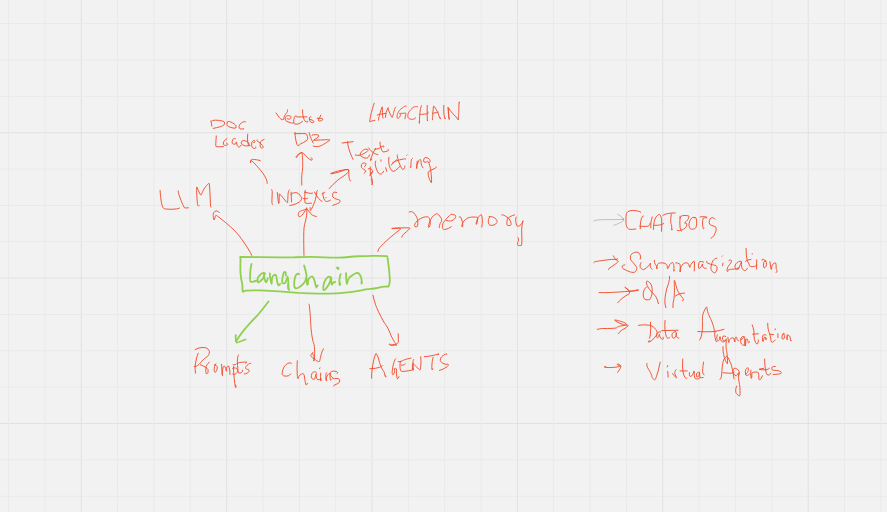 LANGCHAIN
Doc
Loader
Vector
DB
Text
Splitting
LLM
INDEXES
memory
Langchain
Prompts
Chains
AGENTS
CHATBOTS
Summarization
Q/A
Data Augmentation
Virtual Agents